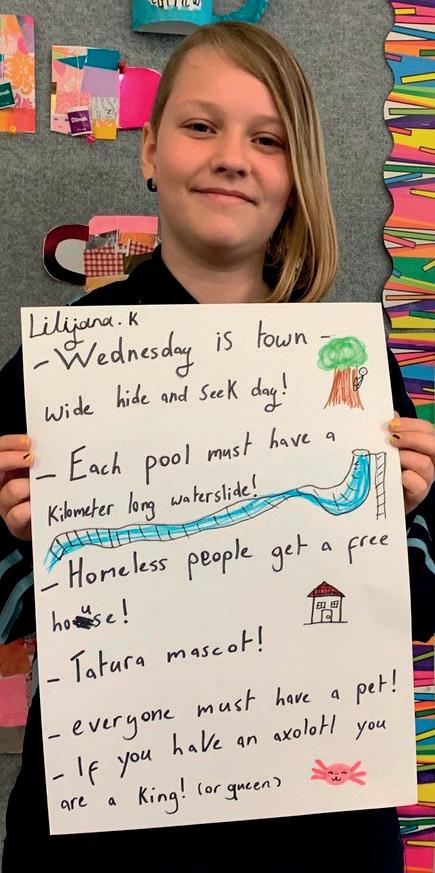 Lilijana. K
- Wednesday is town -
wide hide and seek day!
- Each pool must have a
Kilometer long waterslide!
- Homeless people get a free
house!
- Tatura mascot!
- everyone must have a pet!
- If you have an axolotl you
are a King! (or queen)
Dilmah